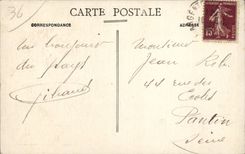 36
CARTE POSTALE
CORRESPONDANCE
ADRESSE
un bonjour
du pays
Monsieur
Jean
44 rue des
Ecoles
Pantin
Seine
15